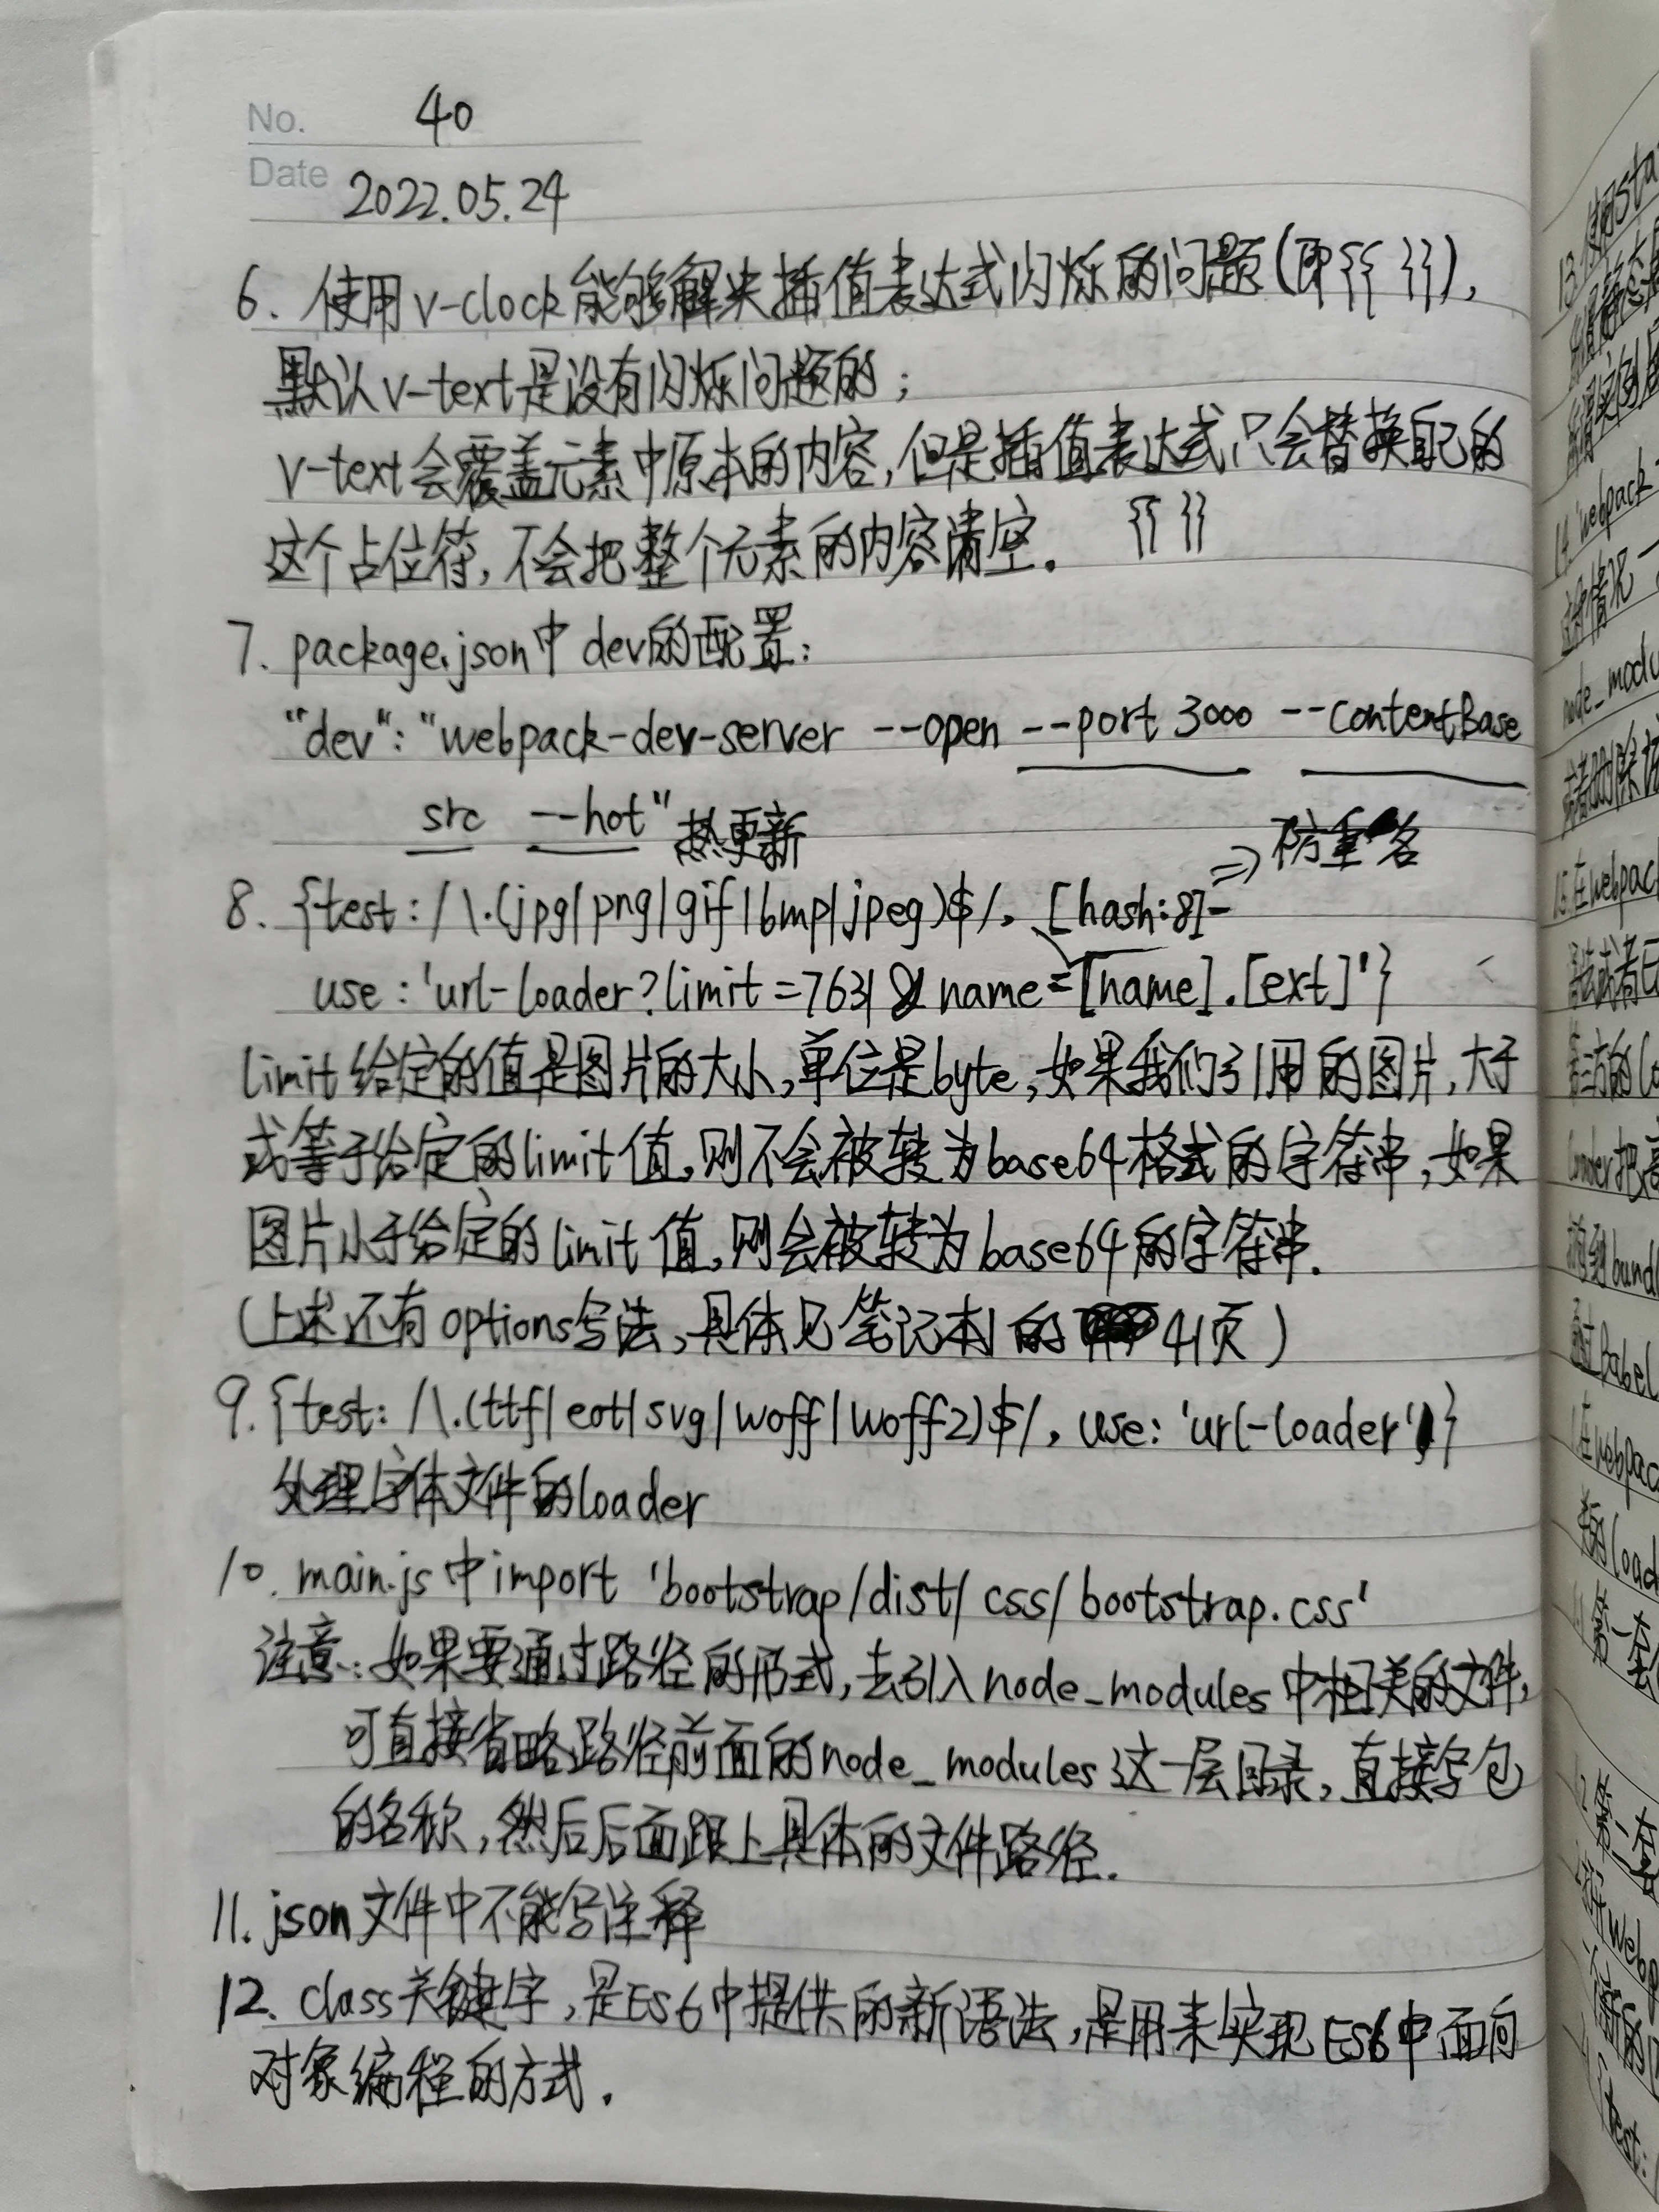 No. 40
Date 2022.05.24
6. 使用v-clock能够解决插值表达式闪烁的问题(即{{ }}),
默认v-text是没有闪烁问题的;
v-text会覆盖元素中原本的内容,但是插值表达式只会替换自己的
这个占位符,不会把整个元素的内容清空. {{ }}
7. package.json中dev的配置:
"dev": "webpack-dev-server --open --port 3000 --contentBase
src --hot" 热更新
⇒ 防重名
8. {test: /\.(jpg|png|gif|bmp|jpeg)$/, [hash:8]-
use: 'url-loader?limit=7631&name=[name].[ext]'}
limit给定的值是图片的大小,单位是byte,如果我们引用的图片,大于
或等于给定的limit值,则不会被转为base64格式的字符串,如果
图片小于给定的limit值,则会被转为base64的字符串.
(上述还有options写法,具体见笔记本1的41页)
9. {test: /\.(ttf|eot|svg|woff|woff2)$/, use: 'url-loader'}
处理字体文件的loader
10. main.js中import 'bootstrap/dist/css/bootstrap.css'
注意:如果要通过路径的形式,去引入node_modules中相关的文件,
可直接省略路径前面的node_modules这一层目录,直接写包
的名称,然后后面跟上具体的文件路径.
11. json文件中不能写注释
12. class关键字,是ES6中提供的新语法,是用来实现ES6中面向
对象编程的方式.